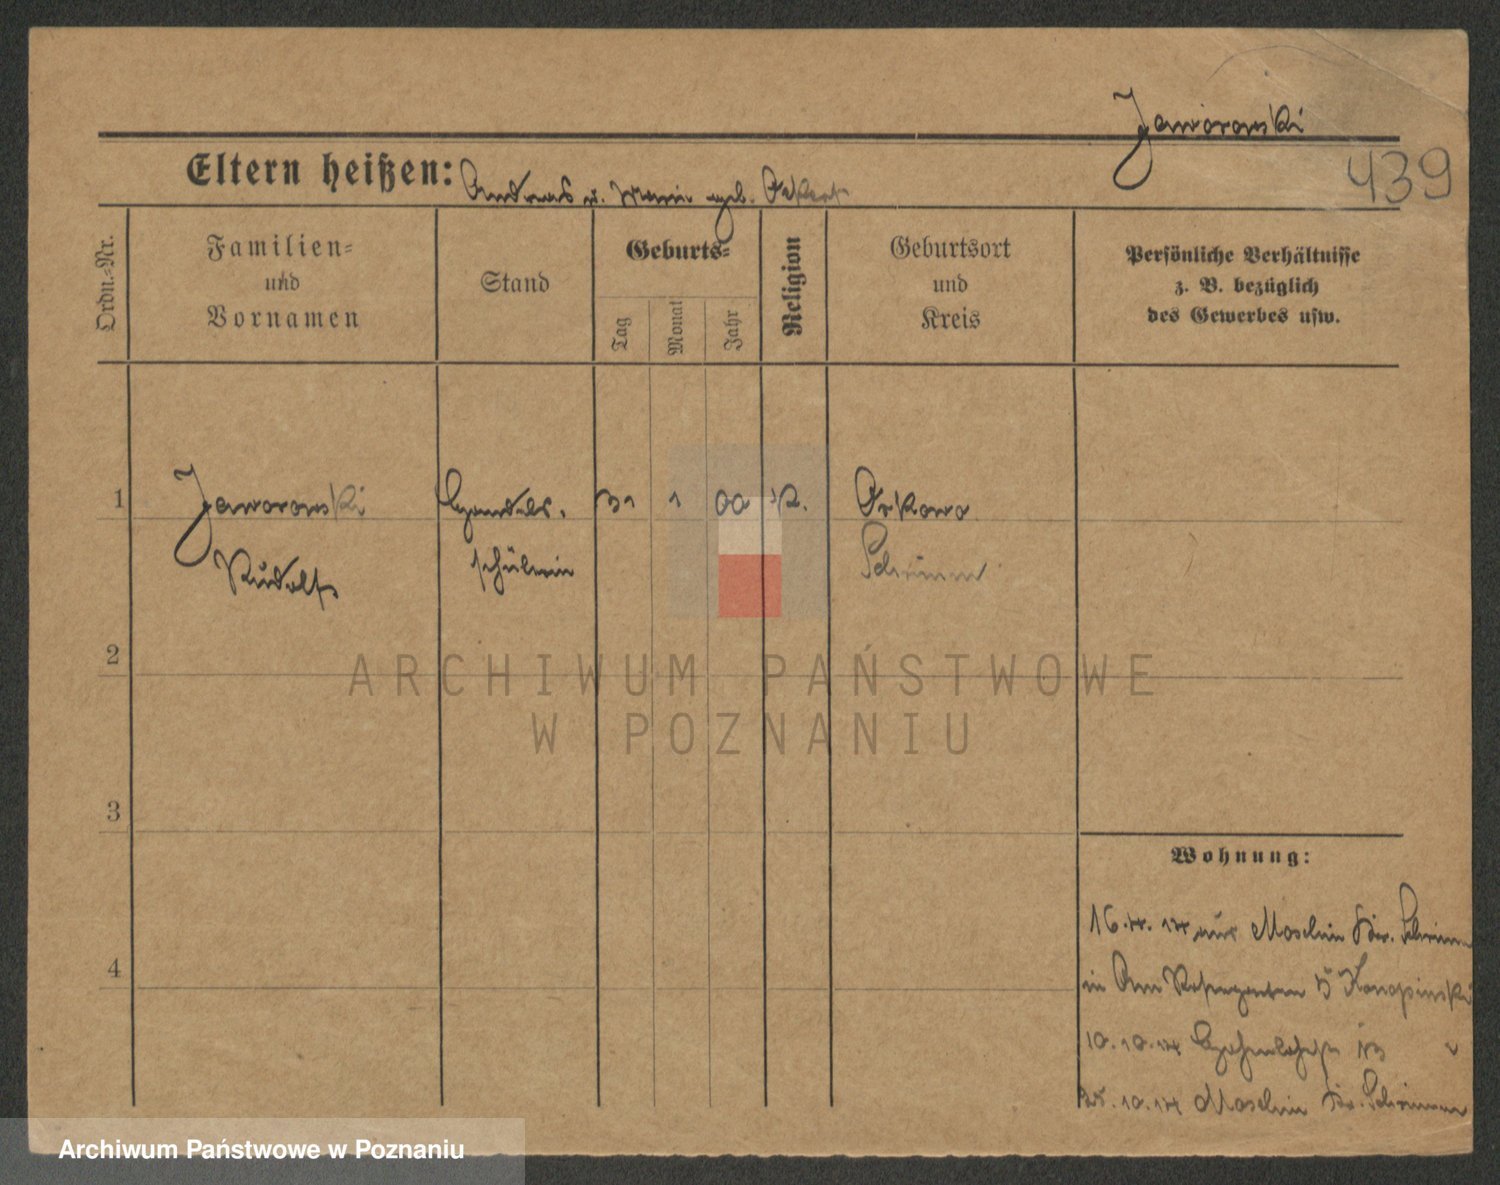 Jaworowski
439
Eltern heißen: Andreas u. Marie geb.
Ordn.-Nr.
Familien-
und
Vornamen
Stand
Geburts-
Tag
Monat
Jahr
Religion
Geburtsort
und
Kreis
Persönliche Verhältnisse
z. B. bezüglich
des Gewerbes usw.
1
Jaworowski
Rudolf
Handels-
schüler
31
1
00
K.
Orkowo
Schrimm
2
3
4
ARCHIWUM PAŃSTWOWE
W POZNANIU
Wohnung:
16. 4. 14 aus Moschin Kr. Schrimm
in Am 5 Konopinski
10. 10. 14 13 "
10. 14 Moschin Kr. Schrimm
Archiwum Państwowe w Poznaniu